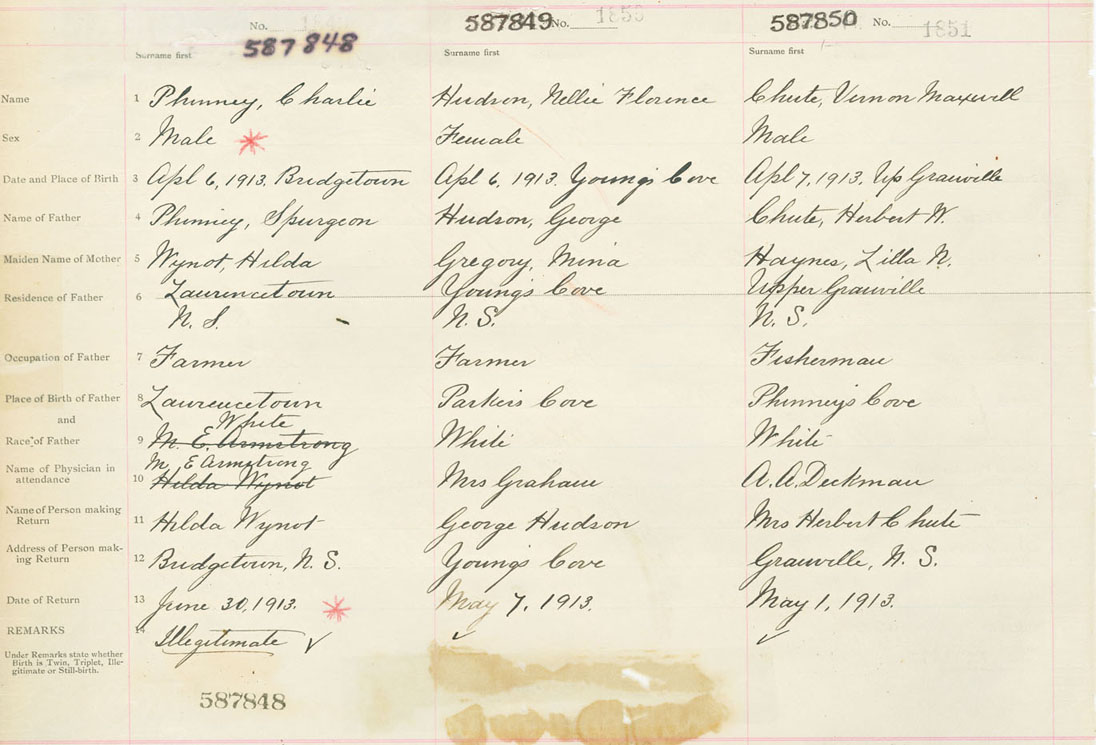 No. 587848
587849 No. 1850
587850 No. 1851
Surname first Surname first Surname first
Name 1 Phinney, Charlie Hudson, Nellie Florence Chute, Vernon Maxwell
Sex 2 Male Female Male
Date and Place of Birth 3 Apl 6, 1913. Bridgetown Apl 6, 1913. Young's Cove Apl 7, 1913. Up Granville
Name of Father 4 Phinney, Spurgeon Hudson, George Chute, Herbert W.
Maiden Name of Mother 5 Wynot, Hilda Gregory, Mina Haynes, Lilla N.
Residence of Father 6 Laurencetown Young's Cove Upper Granville
N. S. N. S. N. S.
Occupation of Father 7 Farmer Farmer Fisherman
Place of Birth of Father 8 Laurencetown Parker's Cove Phinney's Cove
and White
Race of Father 9 M. E. Armstrong White White
Name of Physician in M, E Armstrong
attendance 10 Hilda Wynot Mrs Graham A. A. Deckman
Name of Person making
Return 11 Hilda Wynot George Hudson Mrs Herbert Chute
Address of Person mak-
ing Return 12 Bridgetown, N. S. Young's Cove Granville, N. S.
Date of Return 13 June 30, 1913. May 7, 1913. May 1, 1913.
REMARKS 14 Illegitimate ✓ ✓ ✓
Under Remarks state whether
Birth is Twin, Triplet, Ille-
gitimate or Still-birth.
587848